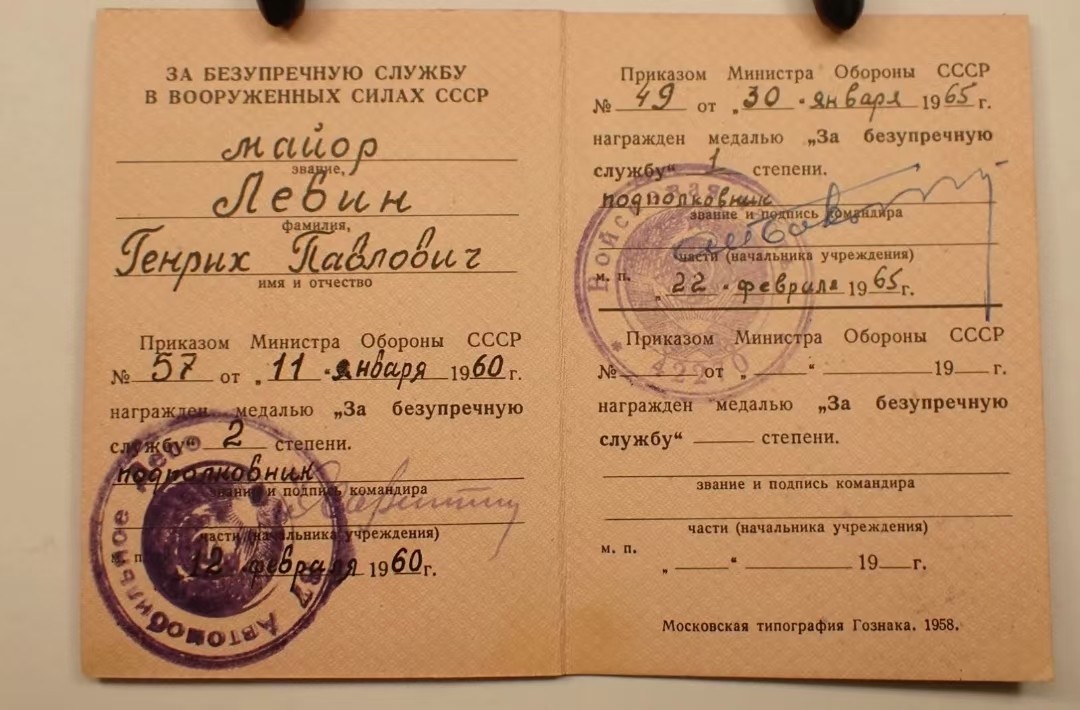 ЗА БЕЗУПРЕЧНУЮ СЛУЖБУ
В ВООРУЖЕННЫХ СИЛАХ СССР
майор
звание,
Левин
фамилия,
Генрих Павлович
имя и отчество
Приказом Министра Обороны СССР
№ 57 от „11 " января 1960 г.
награжден медалью „За безупречную
службу“ 2 степени.
подполковник
звание и подпись командира
части (начальника учреждения)
м. п.
12 февраля 1960 г.
37 Автомобильное
Приказом Министра Обороны СССР
№ 49 от „30 " января 1965 г.
награжден медалью „За безупречную
службу“ 1 степени.
подполковник
звание и подпись командира
части (начальника учреждения)
м. п.
„ 22 " февраля 1965 г.
Войсковая
42210
Приказом Министра Обороны СССР
№ от „ “ 19 г.
награжден медалью „За безупречную
службу“ степени.
звание и подпись командира
части (начальника учреждения)
м. п.
„ “ 19 г.
Московская типография Гознака. 1958.